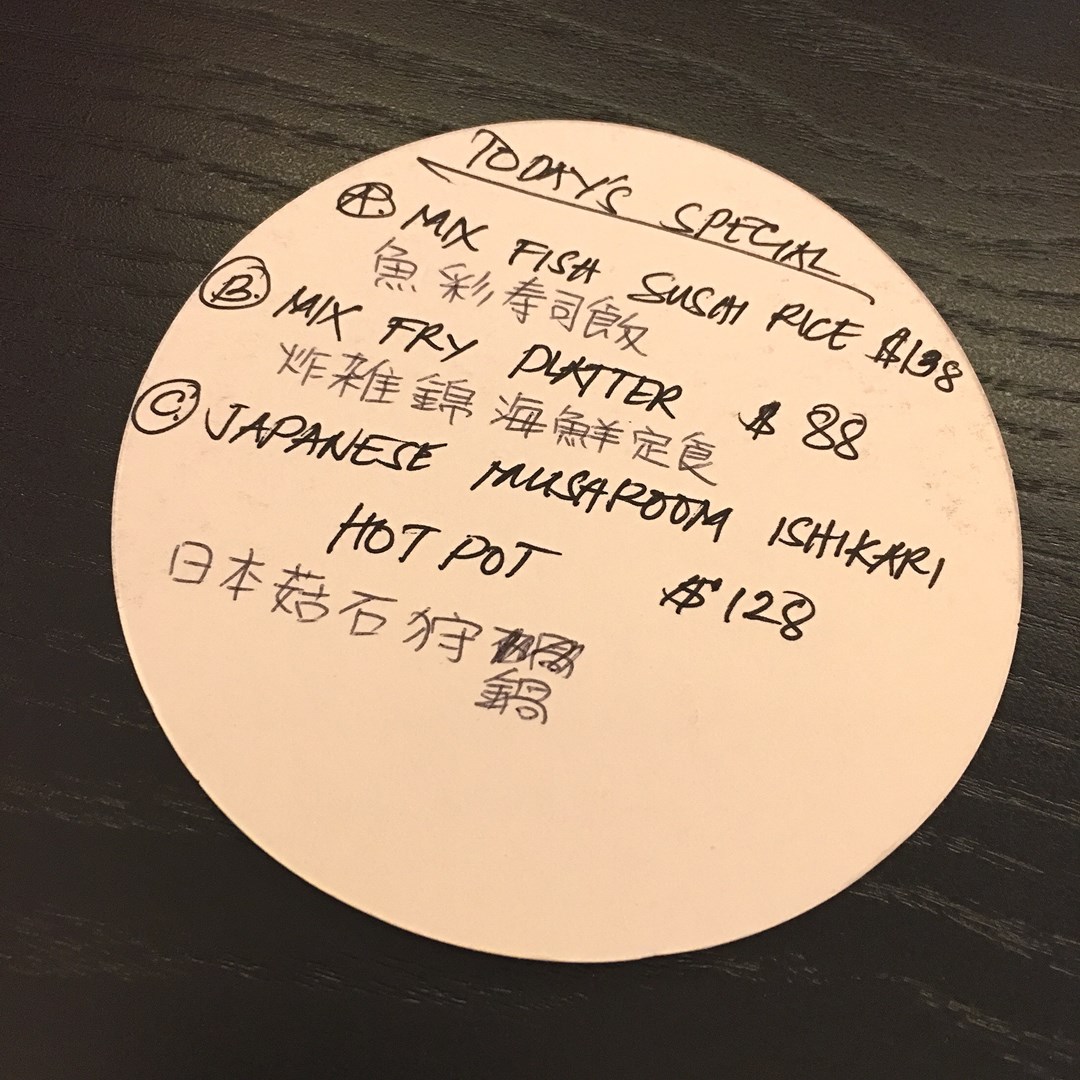 TODAY'S SPECIAL
A. MIX FISH SUSHI RICE $138
魚彩寿司飯
B. MIX FRY PLATTER $ 88
炸雑錦海鮮定食
C. JAPANESE MUSHROOM ISHIKARI
HOT POT $128
日本菇石狩
鍋